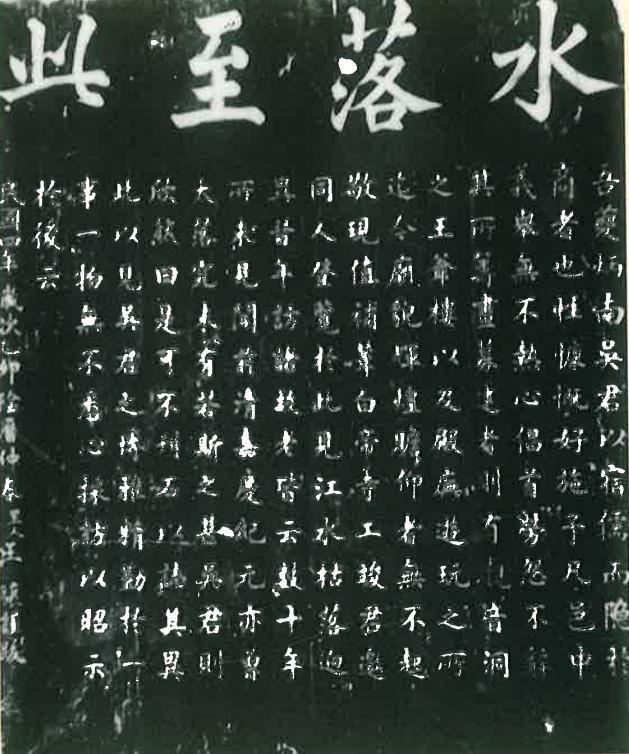 水落至此
吾夔炳南吳君以宿儒而隱於
商者也性慷慨好施予凡邑中
義舉無不熱心倡首勞怨不辭
其所籌畫募建者則有音洞
之王爺樓以及殿廡遊玩之所
迄今廟貌輝煌瞻仰者無不起
敬現值補葺白帝寺工竣君邀
同人登覽於此見江水枯落迥
異昔年訪諸故老皆云數十年
所未見聞前清嘉慶紀元亦曾
大落究未有若斯之甚吳君則
欣然曰是可不刊石以誌其異
此以見吳君之博雅精勤於一
事一物無不悉心採訪以昭示
於後云
民國四年歲次乙卯陰曆仲春里人王丁跋